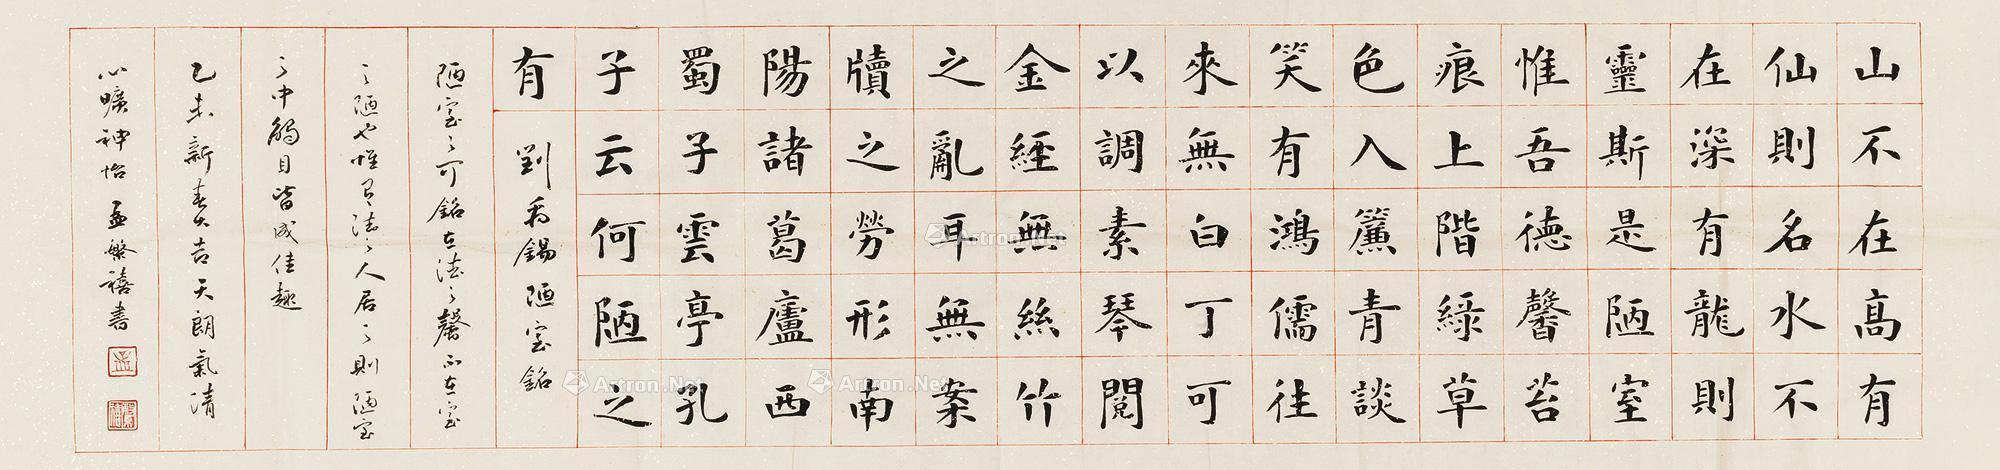 山不在高有
仙則名水不
在深有龍則
靈斯是陋室
惟吾德馨苔
痕上階綠草
色入簾青談
笑有鴻儒往
來無白丁可
以調素琴閱
金經無絲竹
之亂耳無案
牘之勞形南
陽諸葛廬西
蜀子雲亭孔
子云何陋之
有 劉禹錫陋室銘
陋室之可銘在德之馨不在室
之陋也惟有德之人居之則陋室
之中觸目皆成佳趣
乙未新春大吉天朗氣清
心曠神怡 孟繁禧書
Artron.Net
Artron.Net
Artron.Net